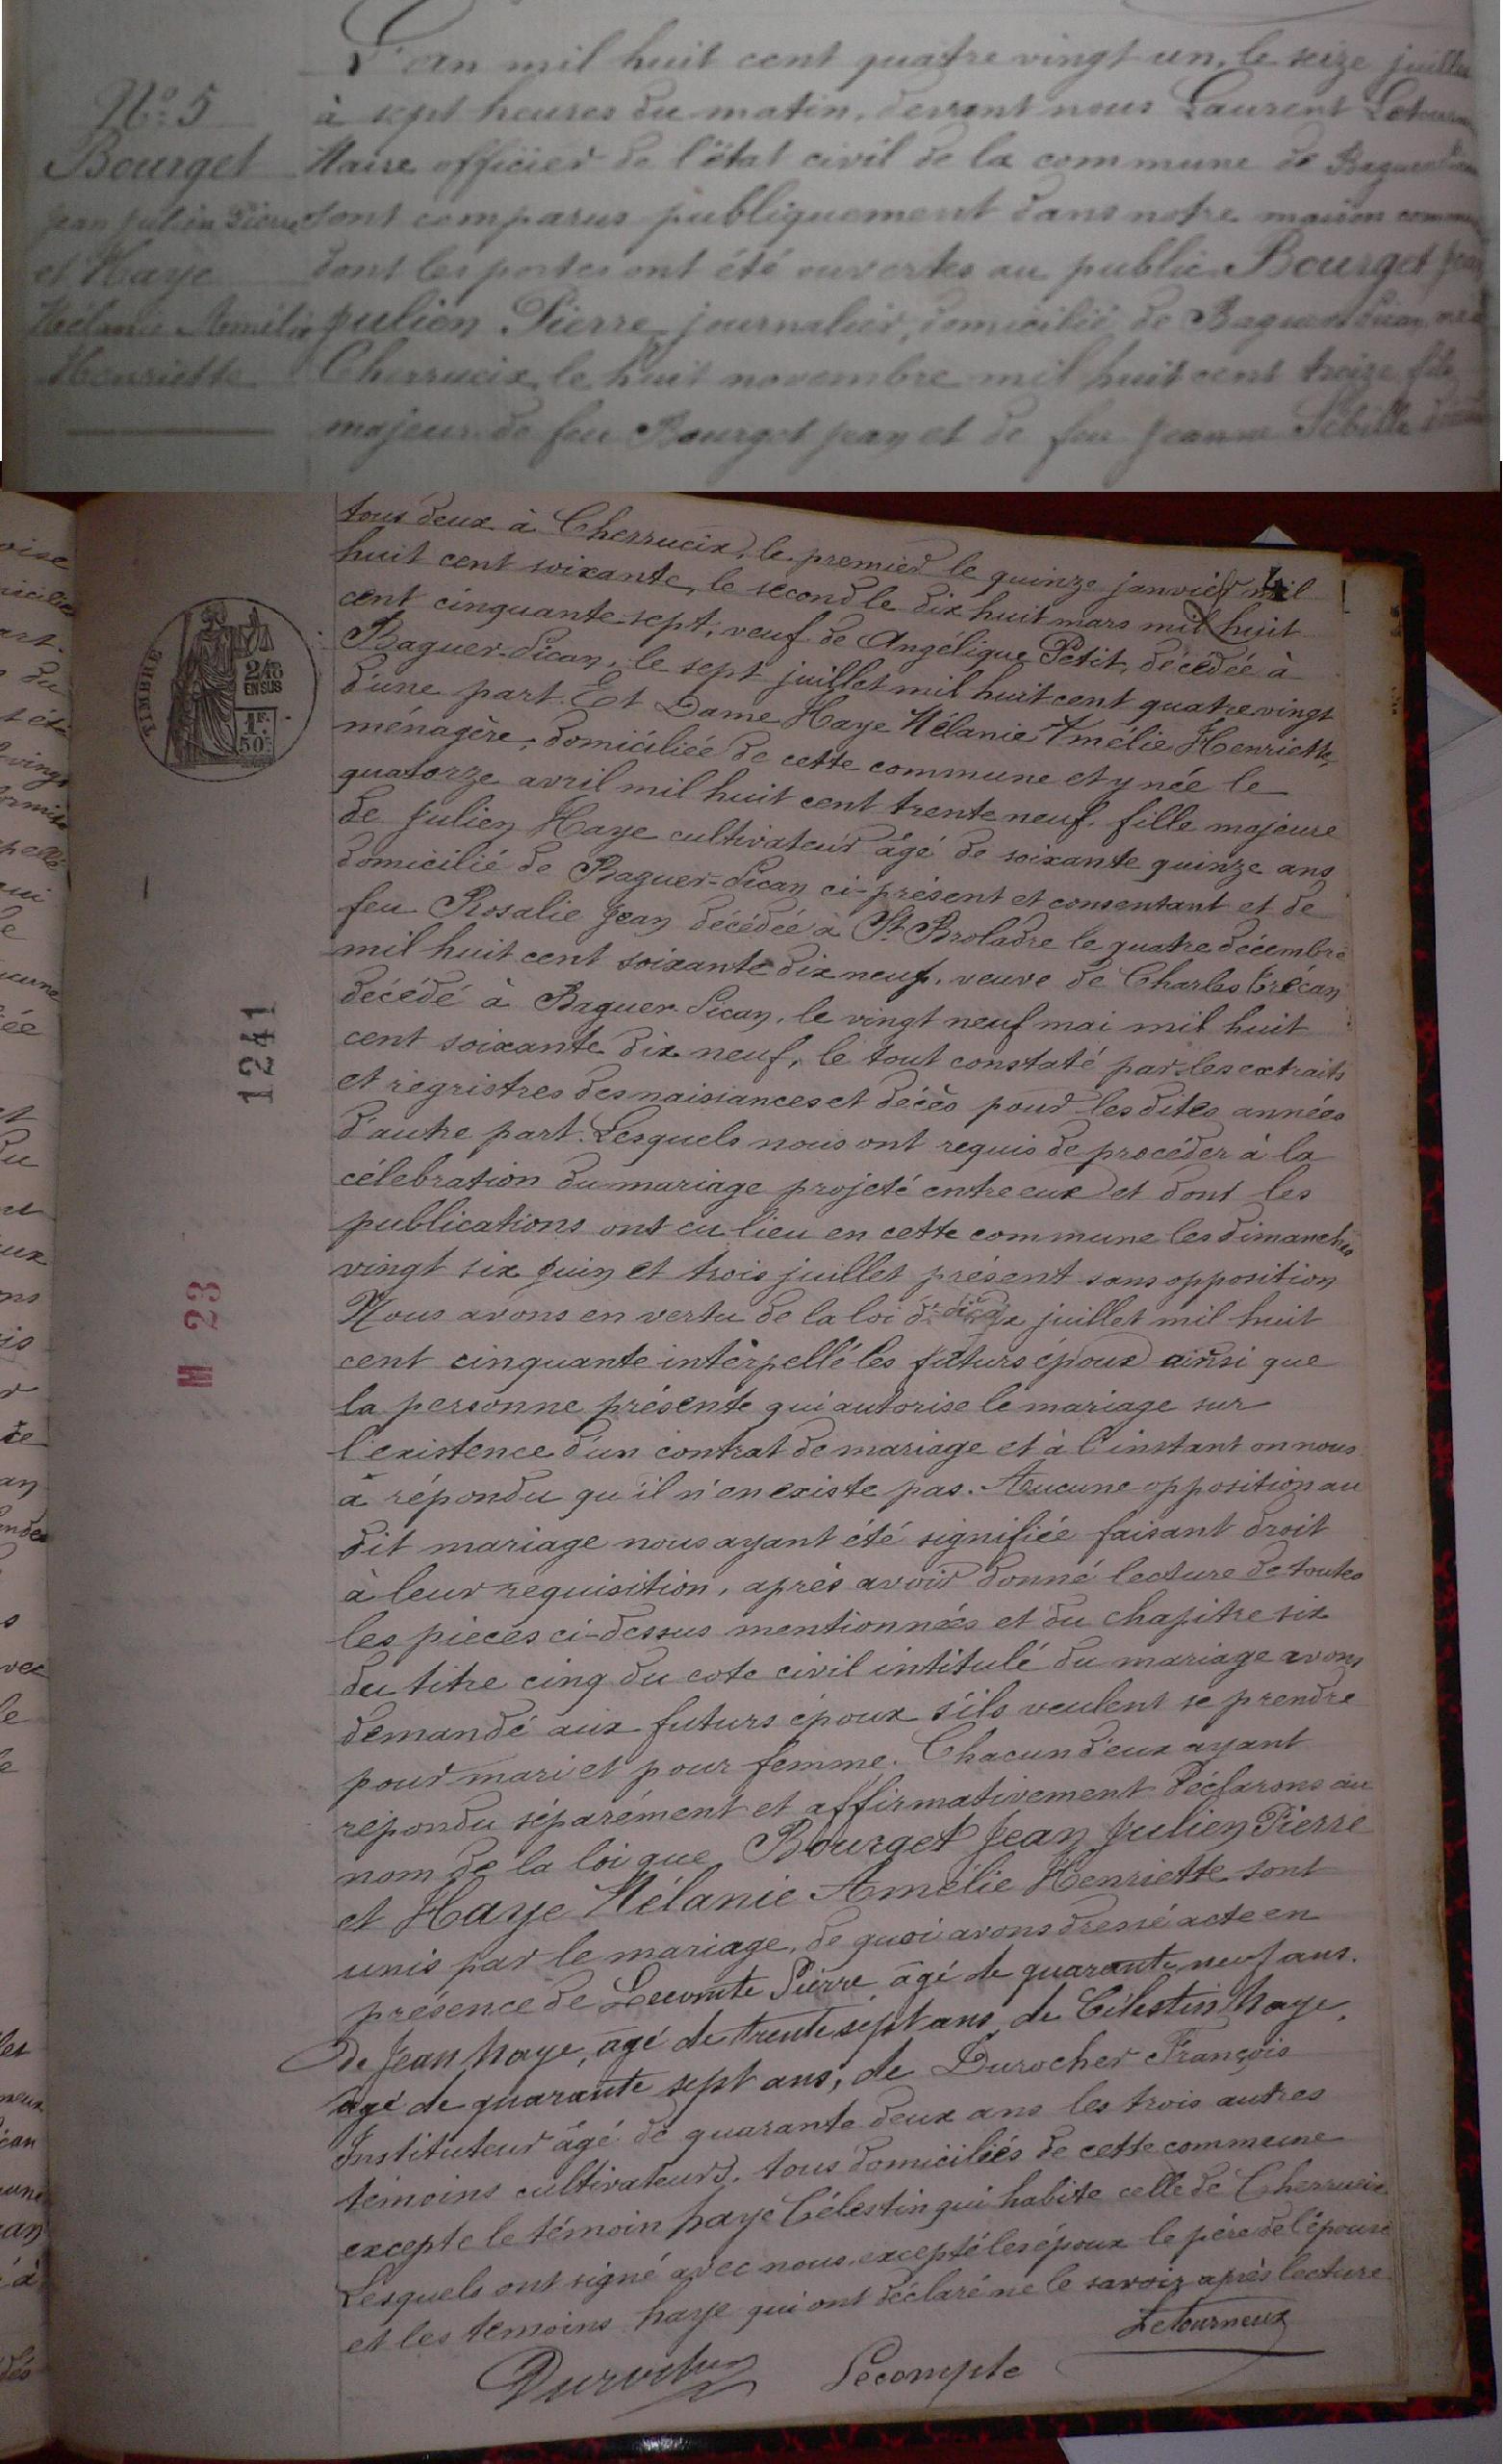 L'an mil huit cent quatre vingt un, le seize juillet
N° 5
à sept heures du matin, devant nous Laurent
Bourget
Maire officier de l'état civil de la commune de
Jean Julien Pierre
sont comparus publiquement dans notre maison
et Haye
dont les portes ont été ouvertes au public Bourget Jean
Mélanie Amélie
Julien Pierre, journalier, domicilié de Baguer-Pican, né à
Henriette
Cherrueix le huit novembre mil huit cent treize fils
majeur de feu Bourget Jean et de feu Jeanne Sébille
tous deux à Cherrueix, le premier le quinze janvier mil
4
huit cent soixante, le second le dix huit mars mil huit
cent cinquante sept, veuf de Angélique Petit, décédée à
Baguer-Pican, le sept juillet mil huit cent quatre vingt
d'une part. Et Dame Haye Mélanie Amélie Henriette,
ménagère, domiciliée de cette commune et y née le
quatorze avril mil huit cent trente neuf, fille majeure
de Julien Haye cultivateur âgé de soixante quinze ans
domicilié de Baguer-Pican ci-présent et consentant et de
feu Rosalie Jean décédée à St Broladre le quatre décembre
mil huit cent soixante dix neuf, veuve de Charles Trécan
décédé à Baguer-Pican, le vingt neuf mai mil huit
cent soixante dix neuf, le tout constaté par les extraits
et régristres des naissances et décès pour les dites années
d'autre part. Lesquels nous ont requis de procéder à la
célebration du mariage projeté entre eux et dont les
publications ont eu lieu en cette commune les dimanches
vingt six Juin et trois juillet présent sans opposition
Nous avons en vertu de la loi du dix juillet mil huit
cent cinquante intérpellé les futurs époux ainsi que
la personne présente qui autorise le mariage sur
l'existence d'un contrat de mariage et à l'instant on nous
a répondu qu'il n'en existe pas. Aucune opposition au
dit mariage nous ayant été signifiée faisant droit
à leur requisition, après avoir donné lecture de toutes
les pièces ci-dessus mentionnées et du chapitre six
du titre cinq du cote civil intitulé du mariage avons
demandé aux futurs époux s'ils veulent se prendre
pour mari et pour femme. Chacun d'eux ayant
répondu séparément et affirmativement Déclarons au
nom de la loi que Bourget Jean Julien Pierre
et Haye Mélanie Amélie Henriette sont
unis par le mariage, de quoi avons dressé acte en
présence de Lecomte Pierre, âgé de quarante neuf ans.
De Jean haye, âgé de trente sept ans, de Célestin haye,
âgé de quarante sept ans, de Durocher François
Instituteur âgé de quarante deux ans les trois autres
témoins cultivateurs, tous domiciliés de cette commune
excepte le témoin haye Célestin qui habite celle de Cherrueix
Lesquels ont signé avec nous, excepté les époux le père de l'épouse
et les temoins haye qui ont déclaré ne le savoir après lecture
Letourneux
Durocher Lecompte
TIMBRE
2/10
EN SUS
1F.
50C.
1241
M 23